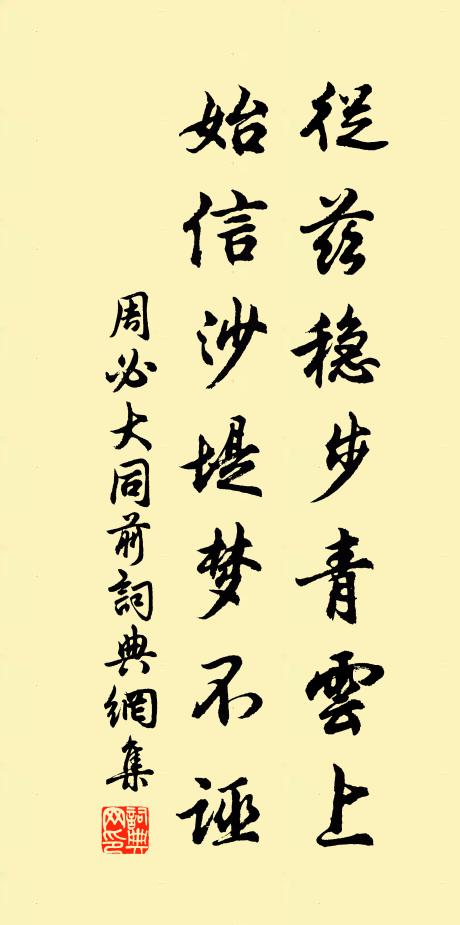 從茲穩步青雲上
始信沙堤梦不誣
周必大同前詞典網集
詞典网印